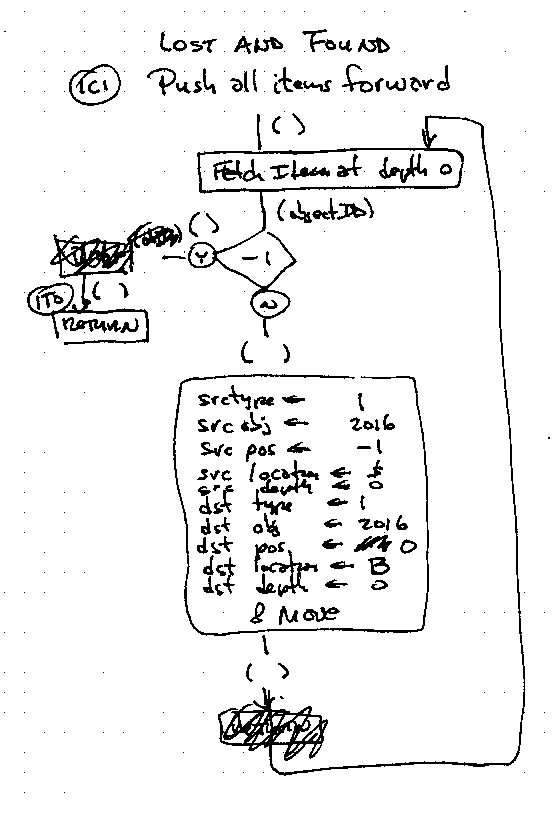 LOST AND FOUND
1C1 Push all items forward
( )
Fetch Item at depth 0
(objectID)
( )
Y -1
N
1T0 ( )
RETURN
( )
src type ← 1
src obj ← 2016
src pos ← -1
src location ←
src depth ← 0
dst type ← 1
dst obj ← 2016
dst pos ← 0
dst location ← B
dst depth ← 0
& Move
( )